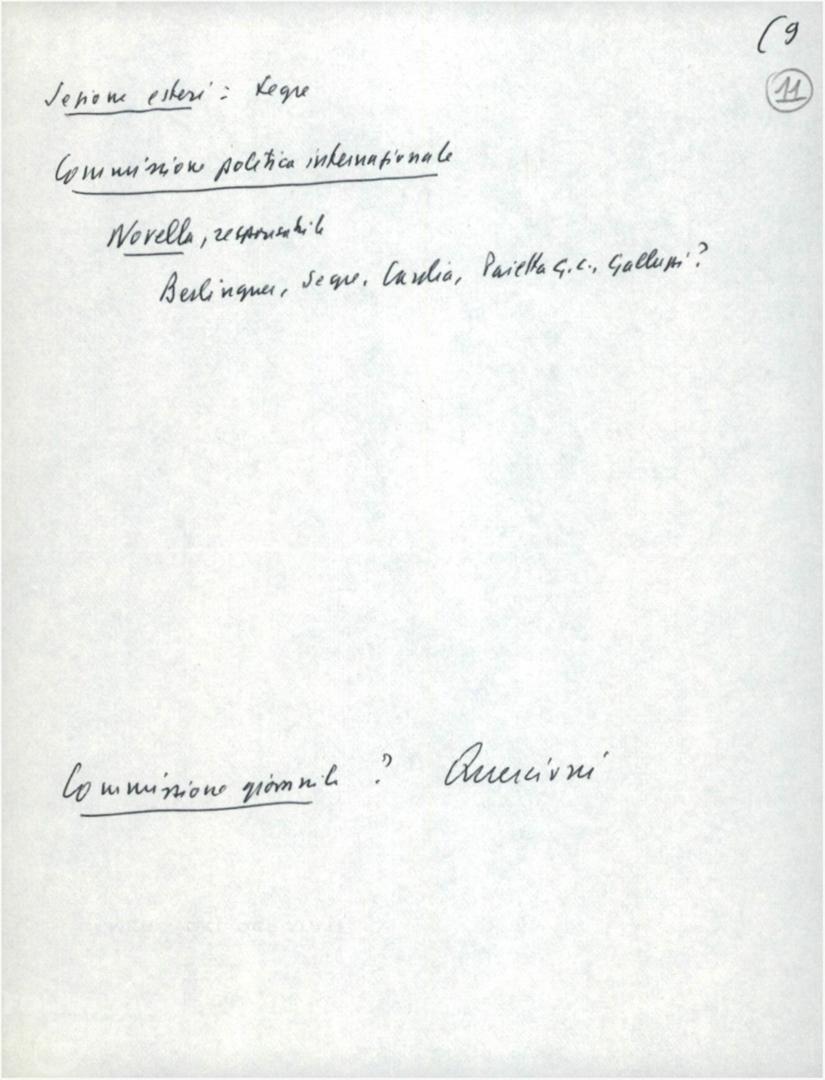 (9
11
Sezione esteri: Segre
Commissione politica internazionale
Novella, responsabile
Berlinguer, Segre, Cardia, Paietta G.C., Galluzzi?
Commissione giovanile ? Quercioni